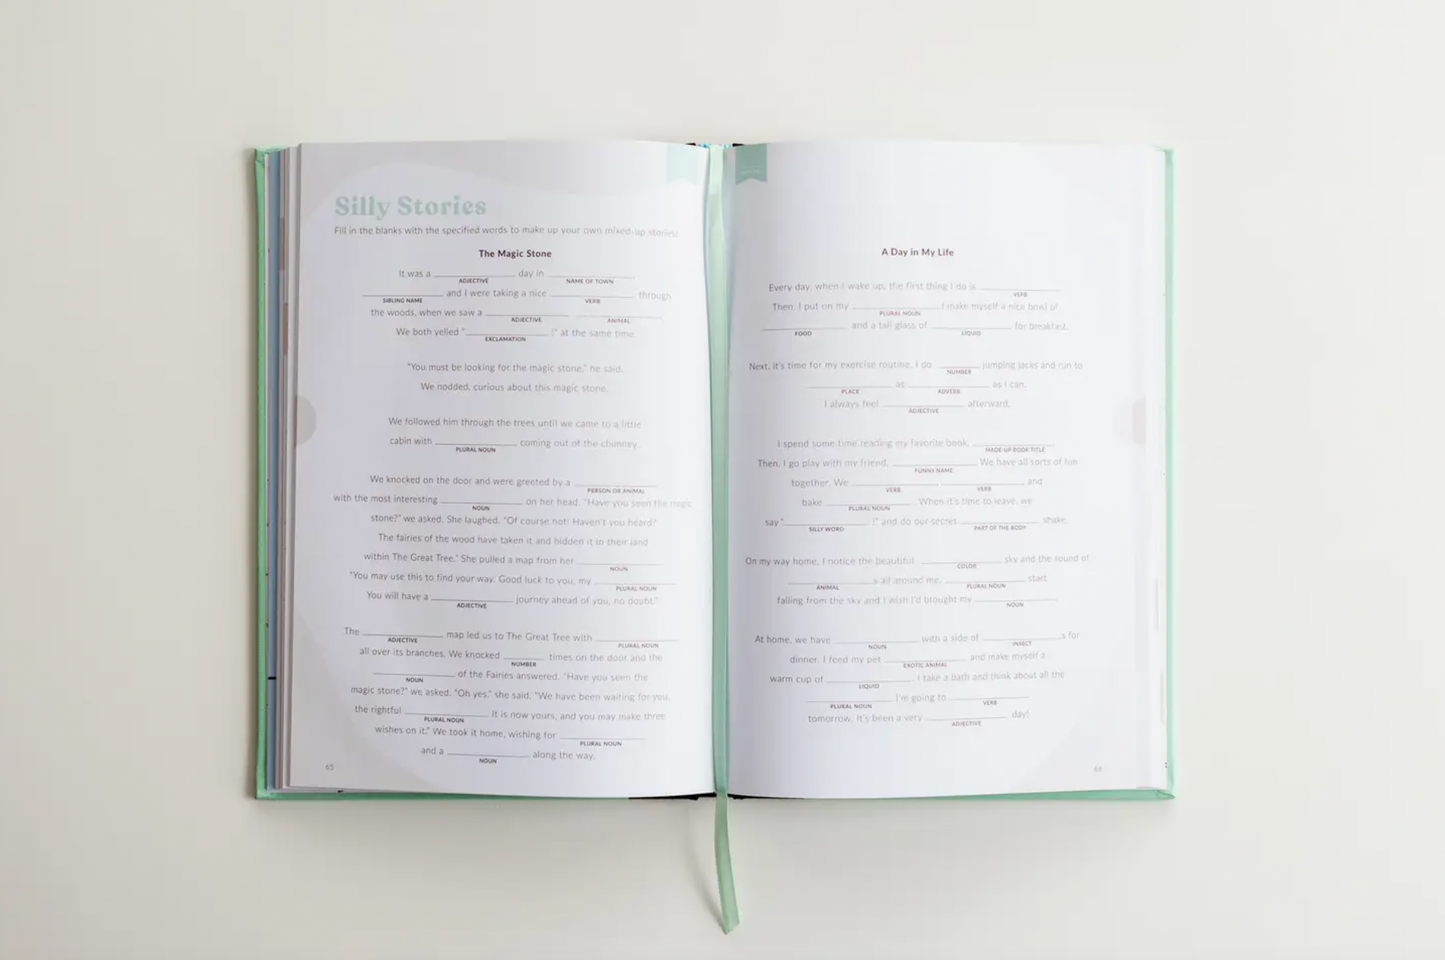 Silly Stories
Fill in the blanks with the specified words to make up your own mixed-up stories!
The Magic Stone
It was a ____________ day in ____________
ADJECTIVE NAME OF TOWN
____________ and I were taking a nice ____________ through
SIBLING NAME VERB
the woods, when we saw a ____________ ____________
ADJECTIVE ANIMAL
We both yelled "____________!" at the same time.
EXCLAMATION
"You must be looking for the magic stone," he said.
We nodded, curious about this magic stone.
We followed him through the trees until we came to a little
cabin with ____________ coming out of the chimney.
PLURAL NOUN
We knocked on the door and were greeted by a ____________
PERSON OR ANIMAL
with the most interesting ____________ on her head. "Have you seen the magic
NOUN
stone?" we asked. She laughed. "Of course not! Haven't you heard?
The fairies of the wood have taken it and hidden it in their land
within The Great Tree." She pulled a map from her ____________
NOUN
"You may use this to find your way. Good luck to you, my ____________
PLURAL NOUN
You will have a ____________ journey ahead of you, no doubt."
ADJECTIVE
The ____________ map led us to The Great Tree with ____________
ADJECTIVE PLURAL NOUN
all over its branches. We knocked ______ times on the door and the
NUMBER
____________ of the Fairies answered. "Have you seen the
NOUN
magic stone?" we asked. "Oh yes," she said, "We have been waiting for you,
the rightful ____________. It is now yours, and you may make three
PLURAL NOUN
wishes on it." We took it home, wishing for ____________
PLURAL NOUN
and a ____________ along the way.
NOUN
65
A Day in My Life
Every day, when I wake up, the first thing I do is ____________
VERB
Then, I put on my ____________. I make myself a nice bowl of
PLURAL NOUN
____________ and a tall glass of ____________ for breakfast.
FOOD LIQUID
Next, it's time for my exercise routine. I do ______ jumping jacks and run to
NUMBER
____________ as ____________ as I can.
PLACE ADVERB
I always feel ____________ afterward.
ADJECTIVE
I spend some time reading my favorite book, ____________
MADE-UP BOOK TITLE
Then, I go play with my friend, ____________. We have all sorts of fun
FUNNY NAME
together. We ____________, ____________ and
VERB VERB
bake ____________. When it's time to leave, we
PLURAL NOUN
say "____________!" and do our secret ____________ shake.
SILLY WORD PART OF THE BODY
On my way home, I notice the beautiful ____________ sky and the sound of
COLOR
____________s all around me. ____________ start
ANIMAL PLURAL NOUN
falling from the sky and I wish I'd brought my ____________
NOUN
At home, we have ____________ with a side of ____________s for
NOUN INSECT
dinner. I feed my pet ____________ and make myself a
EXOTIC ANIMAL
warm cup of ____________. I take a bath and think about all the
LIQUID
____________ I'm going to ____________
PLURAL NOUN VERB
tomorrow. It's been a very ____________ day!
ADJECTIVE
66